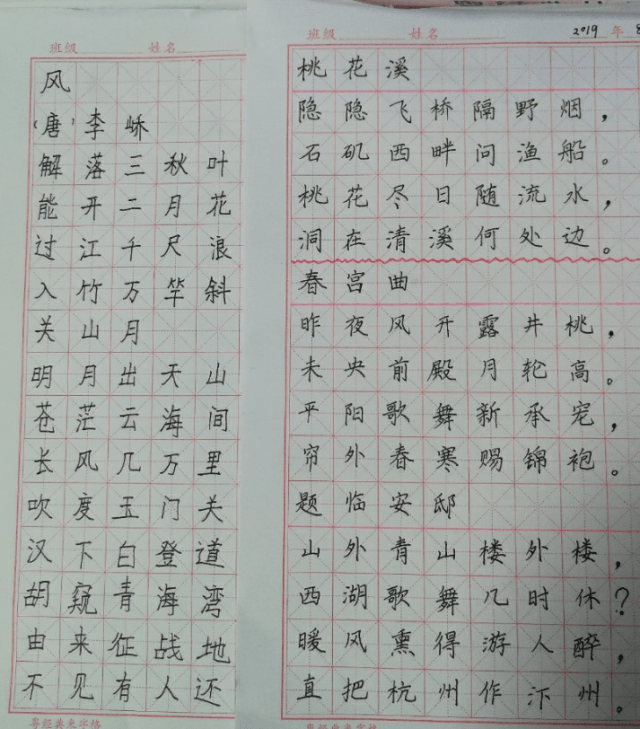 班级 姓名
风
(唐)李峤
解落三秋叶
能开二月花
过江千尺浪
入竹万竿斜
关山月
明月出天山
苍茫云海间
长风几万里
吹度玉门关
汉下白登道
胡窥青海湾
由来征战地
不见有人还
班级 姓名 2019 年 8
桃花溪
隐隐飞桥隔野烟,
石矶西畔问渔船。
桃花尽日随流水,
洞在清溪何处边。
春宫曲
昨夜风开露井桃,
未央前殿月轮高。
平阳歌舞新承宠,
帘外春寒赐锦袍。
题临安邸
山外青山楼外楼,
西湖歌舞几时休?
暖风熏得游人醉,
直把杭州作汴州。